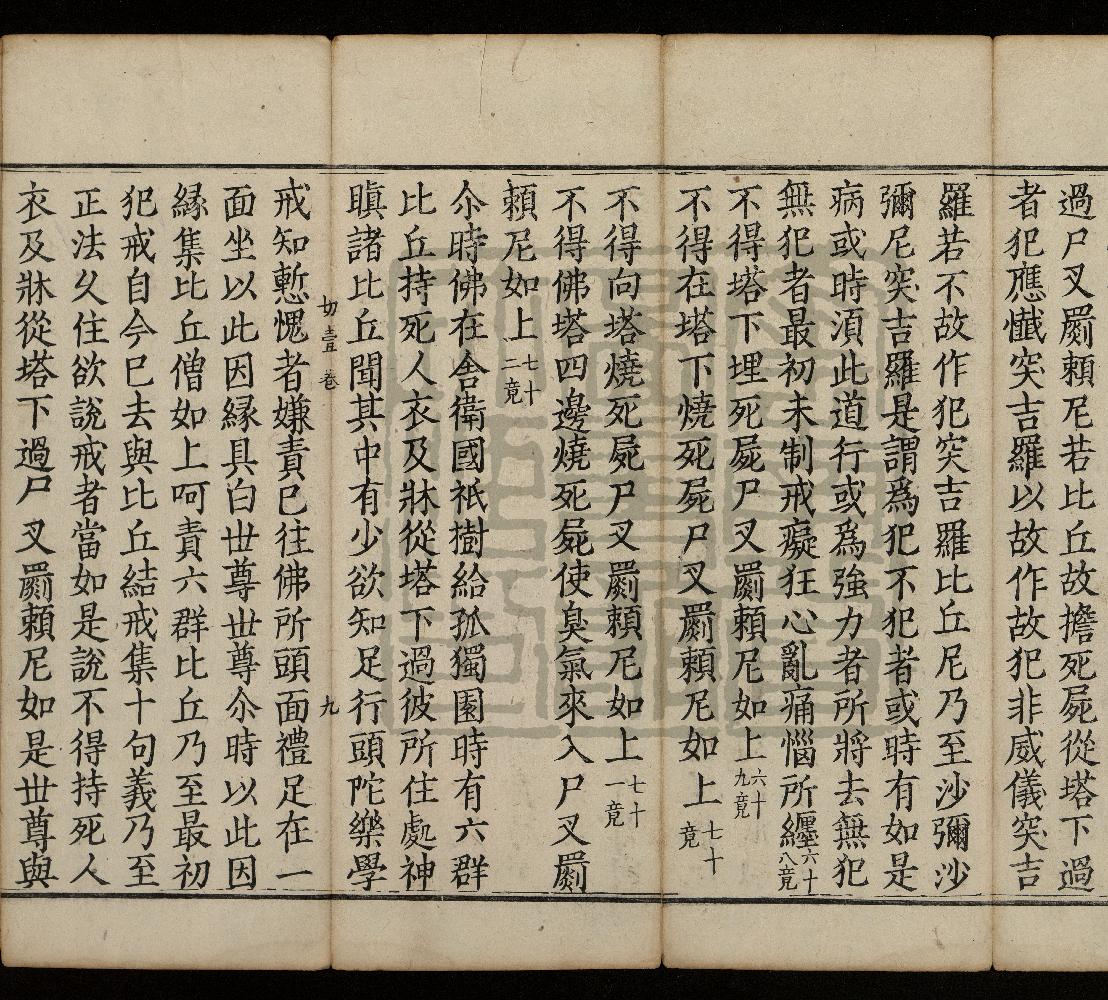 過尸叉罽賴尼若比丘故擔死屍從塔下過
者犯應懺突吉羅以故作故犯非威儀突吉
羅若不故作犯突吉羅比丘尼乃至沙彌沙
彌尼突吉羅是謂爲犯不犯者或時有如是
病或時湏此道行或爲強力者所將去無犯
無犯者最初未制戒癡狂心亂痛惱所纏六十八竟
不得塔下埋死屍尸叉罽賴尼如上六十九竟
不得在塔下燒死屍尸叉罽賴尼如上七十竟
不得向塔燒死屍尸叉罽賴尼如上七十一竟
不得佛塔四邊燒死屍使臭氣來入尸叉罽
賴尼如上七十二竟
尒時佛在舍衛國祇樹給孤獨園時有六群
比丘持死人衣及牀從塔下過彼所住處神
瞋諸比丘聞其中有少欲知足行頭陀樂學
戒知慙愧者嫌責已往佛所頭面禮足在一
面坐以此因縁具白世尊世尊尒時以此因
縁集比丘僧如上呵責六群比丘乃至最初
犯戒自今已去與比丘結戒集十句義乃至
正法久住欲說戒者當如是說不得持死人
衣及牀從塔下過尸叉罽賴尼如是世尊與
壹卷 九